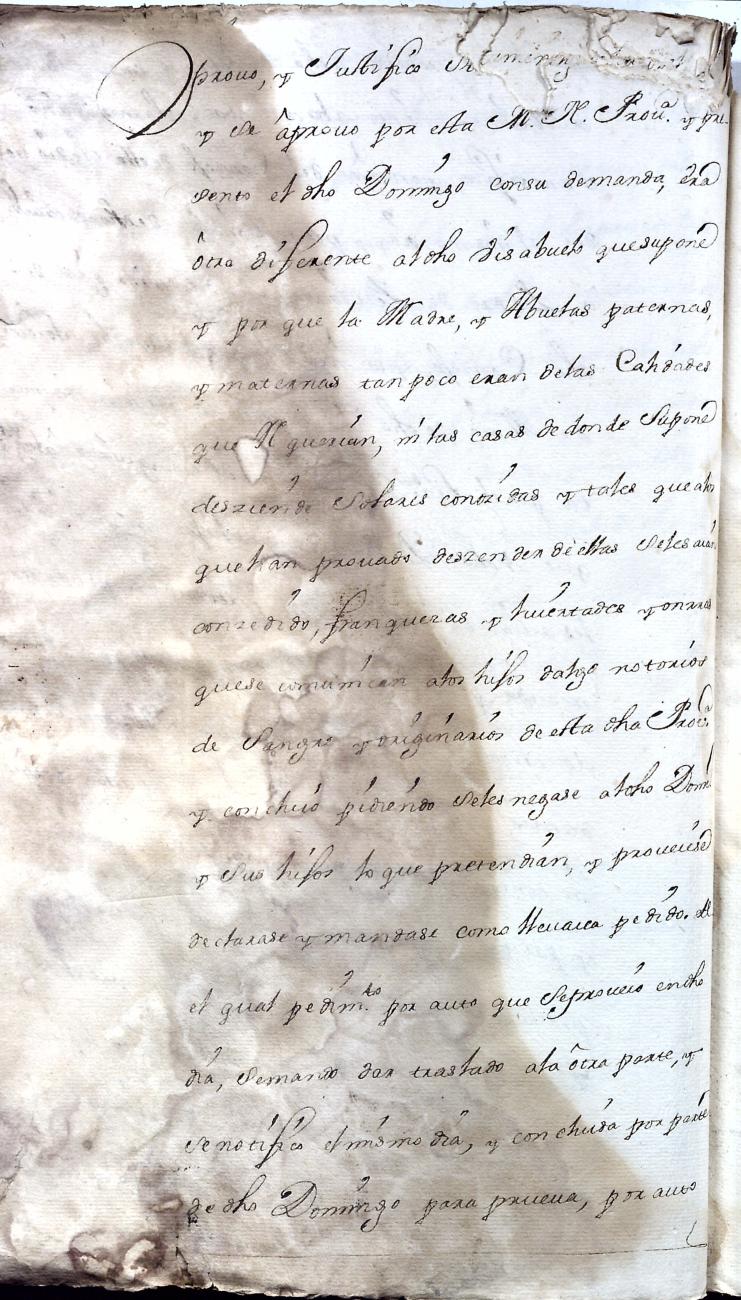 Provo, y Justifico
y se aprovo por esta M. N. Prov.ª y pre-
sento el dho Domingo consu demanda, era
otra diferente aldho visabuelo quesupone
y por que la Madre, y Abuelas paternas,
y maternas tanpoco eran delas Calidades
que querian, ni las casas de donde Supone
desziende Solares conozidas y tales que alos
quehan provado deszender deellas Seles
conzedido, franquezas y livertades y onrras
quese comunican alos hijos dalgo notorios
de Sangre y originarios de esta dha Prov.ª
y concluio pidiendo Seles negase aldho Dom.
y Sus hijos lo que pretendian, y proveiese
declarase y mandase como llevava pedido.
el qual pedim.to por auto que Seproveio endho
dia, Semando dar traslado ala otra parte, y
Senotifico el mismo dia, y concluida por parte
de dho Domingo para prueva, por auto